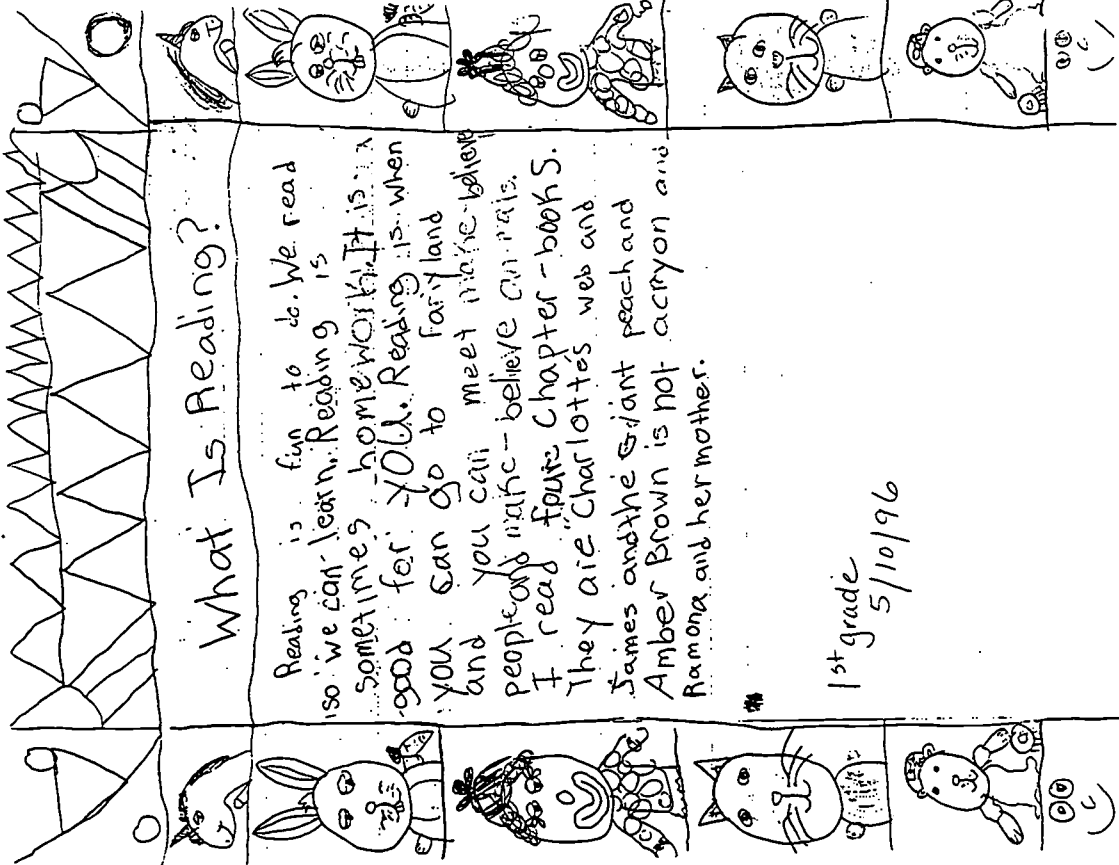 What Is Reading?
Reading is fun to do. We read
so we can learn. Reading is
sometimes homework. It is
good for YOU. Reading is when
you can go to Fairyland
and you can meet make-believe
people and make-believe animals.
I read four Chapter-books.
They are Charlottes web and
James and the Giant peach and
Amber Brown is not a cryon and
Ramona and her mother.
1st grade
5/10/96